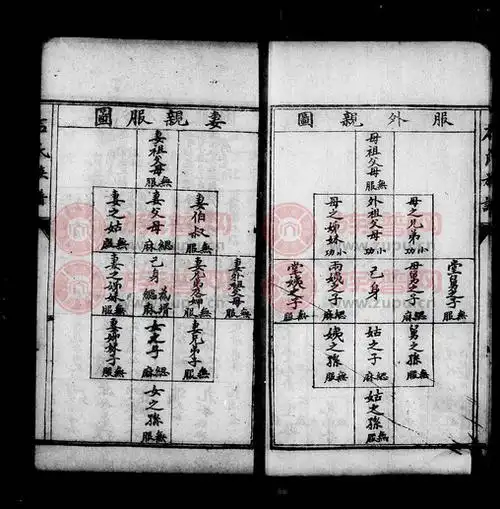 服外親圖
母祖父母 無服
母之兄弟 小功
外祖父母 小功
母之姊妹 小功
堂舅之子 無服
母舅之子 緦麻
己身
兩姨之子 緦麻
堂姨之子 無服
舅之孫 無服
姑之子 緦麻
姨之孫 無服
姑之孫 無服
妻親服圖
妻祖父母 無服
妻伯叔 無服
妻父母 緦麻
妻之姑 無服
妻外祖父母 無服
己身 為壻緦麻
妻之姊妹 無服
妻兄弟子 無服
女之子 緦麻
妻姊妹子 無服
女之孫 無服